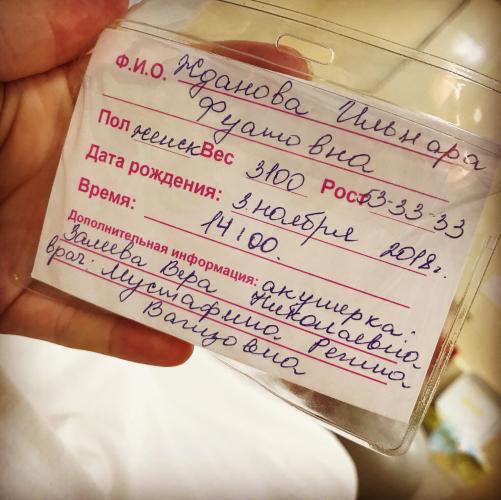 Ф.И.О. Жданова Ильнара
Фуатовна
Пол женск Вес 3100 Рост 53-33-33
Дата рождения: 3 ноября 2018г.
Время: 14:00.
Дополнительная информация: акушерка:
Залеева Вера Николаевна
врач: Мустафина Регина
Вагизовна